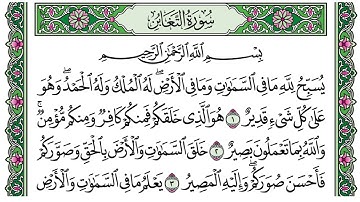 سُورَةُ التَّغَابُنِ
بِسْمِ اللَّهِ الرَّحْمَٰنِ الرَّحِيمِ
يُسَبِّحُ لِلَّهِ مَا فِي السَّمَٰوَٰتِ وَمَا فِي الْأَرْضِ ۖ لَهُ الْمُلْكُ وَلَهُ الْحَمْدُ ۖ وَهُوَ
عَلَىٰ كُلِّ شَيْءٍ قَدِيرٌ ١ هُوَ الَّذِي خَلَقَكُمْ فَمِنكُمْ كَافِرٌ وَمِنكُم مُّؤْمِنٌ ۚ
وَاللَّهُ بِمَا تَعْمَلُونَ بَصِيرٌ ٢ خَلَقَ السَّمَٰوَٰتِ وَالْأَرْضَ بِالْحَقِّ وَصَوَّرَكُمْ
فَأَحْسَنَ صُوَرَكُمْ ۖ وَإِلَيْهِ الْمَصِيرُ ٣ يَعْلَمُ مَا فِي السَّمَٰوَٰتِ وَالْأَرْضِ